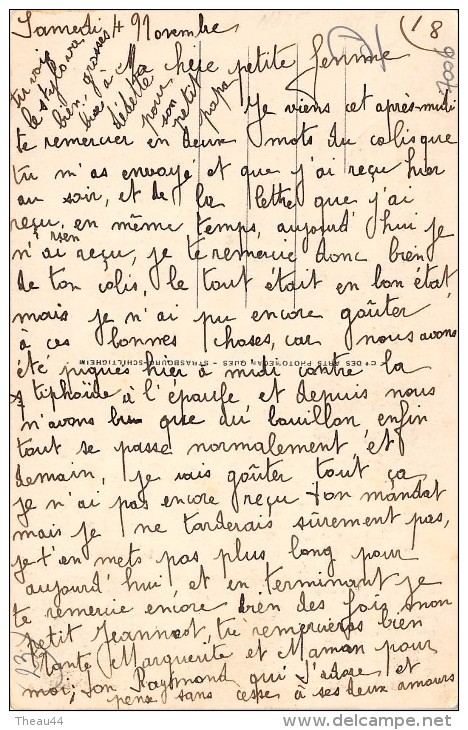 Samedi 4 Novembre
Ma chère petite femme
Je viens cet après-midi
te remercier en deux mots du colis que
tu m'as envoyé et que j'ai reçu hier
au soir, et de la lettre que j'ai
reçu, en même temps, aujourd'hui je
n'ai rien reçu, je te remercie donc bien
de ton colis, le tout était en bon état
mais je n'ai pu encore goûter
à ces bonnes choses, car nous avons
été piqués hier à midi contre la
tiphoïde à l'épaule et depuis nous
n'avons bu que du bouillon, enfin
tout se passe normalement, et
demain, je vais goûter tout ça
je n'ai pas encore reçu ton mandat
mais je ne tarderais sûrement pas,
je t'en mets pas plus long pour
aujourd'hui et en terminant je
te remercie encore bien des fois, mon
petit Jeannot, tu remercieras bien
tante Marguerite et Maman pour
moi; ton Raymond qui t'adore et
pense sans cesse à ses deux amours
tu vois
le stylo va
bien, grosses
bises à
débetta
pour
son
petit
papa
Cie DES ARTS PHOTOMECANIQUES - STRASBOURG-SCHILTIGHEIM
Theau44